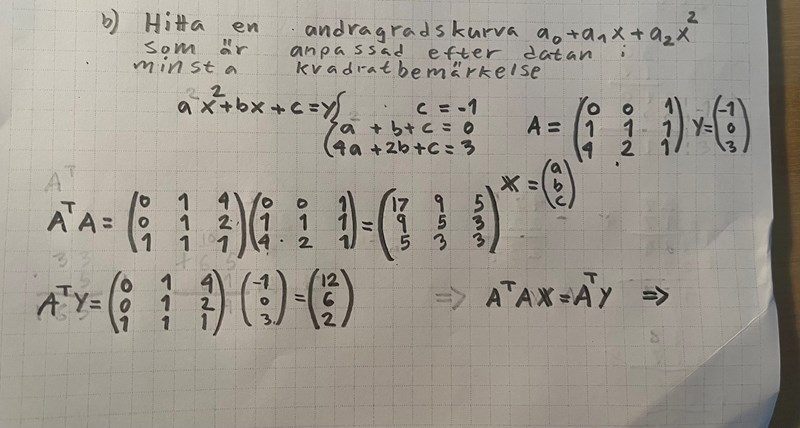 b) Hitta en andragradskurva a₀+a₁x+a₂x²
som är anpassad efter datan i
minsta kvadratbemärkelse
a²x²+bx+c=y { c = -1
a + b+c = 0
4a+2b+c = 3
A = (0 0 1; 1 1 1; 4 2 1) Y = (-1; 0; 3)
X = (a; b; c)
AᵀA = (0 1 4; 0 1 2; 1 1 1) (0 0 1; 1 1 1; 4 2 1) = (17 9 5; 9 5 3; 5 3 3)
AᵀY = (0 1 4; 0 1 2; 1 1 1) (-1; 0; 3) = (12; 6; 2) => AᵀAX = AᵀY =>